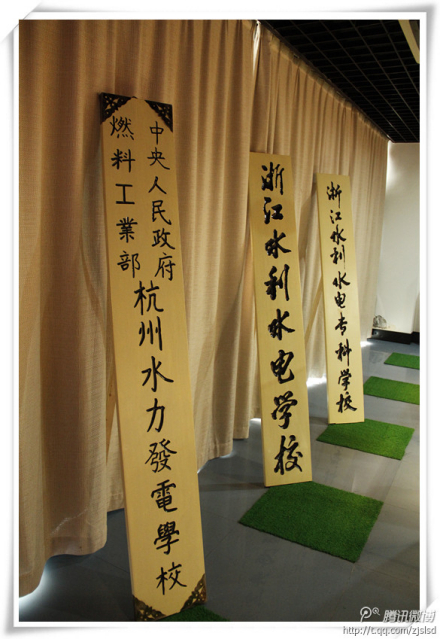 中央人民政府
燃料工業部
杭州水力發電學校
浙江水利水电学校
浙江水利水电专科学校
腾讯微博
http://t.qq.com/zjslsd